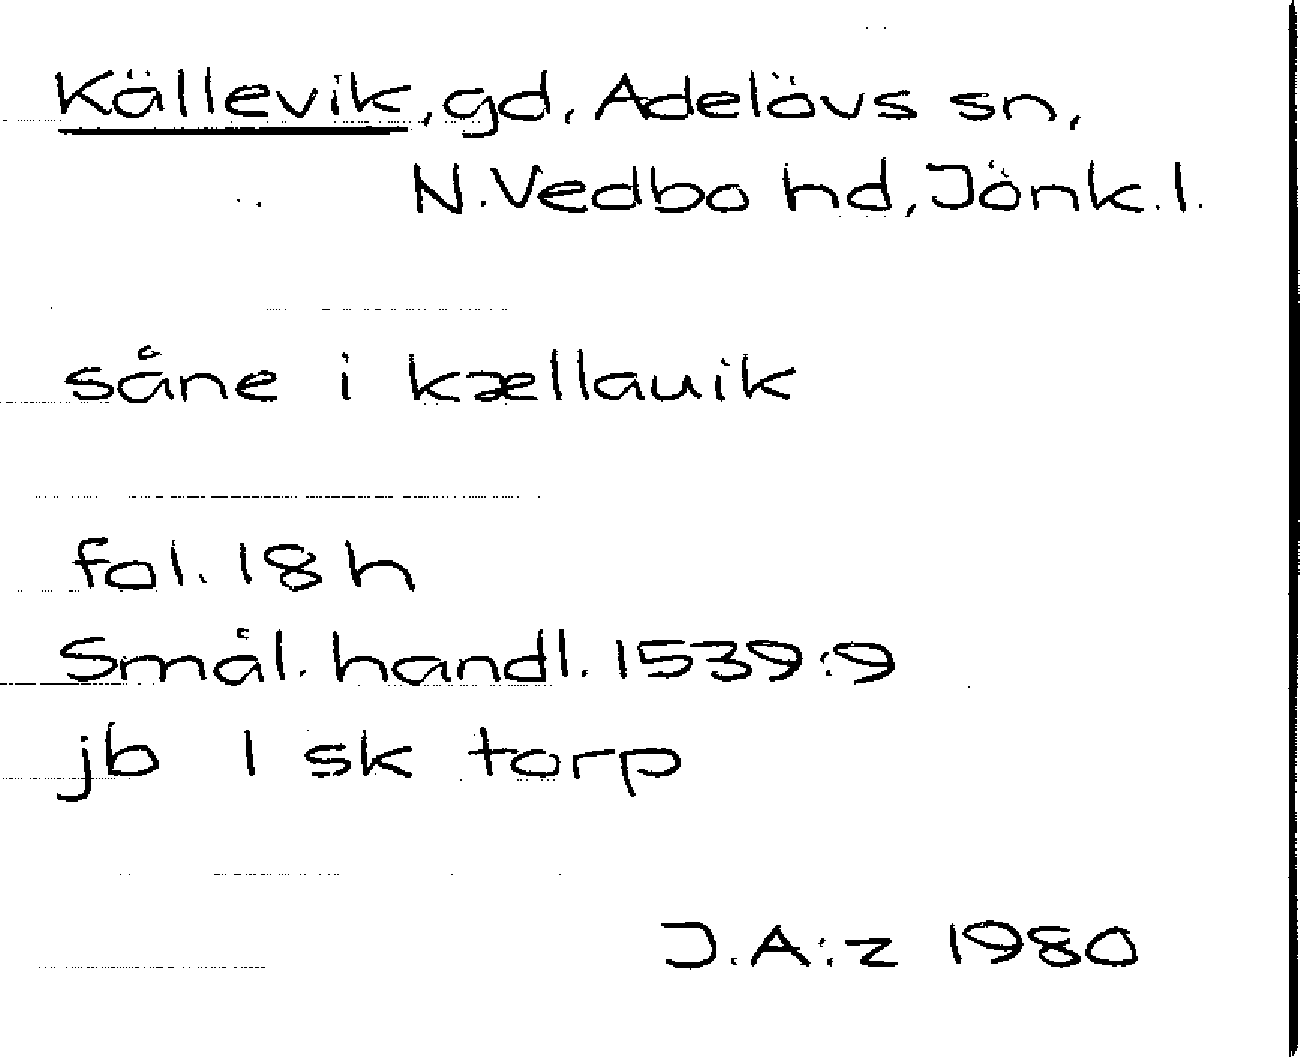 Källevik, gd, Adelövs sn,
N. Vedbo hd, Jönk. l.
såne i kællauik
fol. 18 h
Smål. handl. 1539:9
jb 1 sk torp
J.A:z 1980